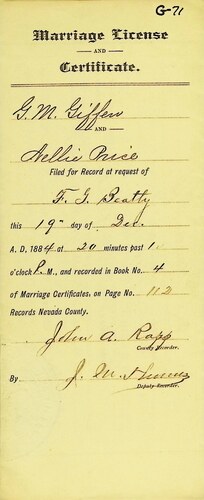 G-71
Marriage License
AND
Certificate.
G. M. Giffen
AND
Nellie Price
Filed for Record at request of
F. G. Beatty
this 19" day of Dec.
A. D, 1884 at 20 minutes past 1
o'clock P. M., and recorded in Book No. 4
of Marriage Certificates, on Page No. 113
Records Nevada County.
John A. Rapp
County Recorder.
By J. M.
Deputy Recorder.